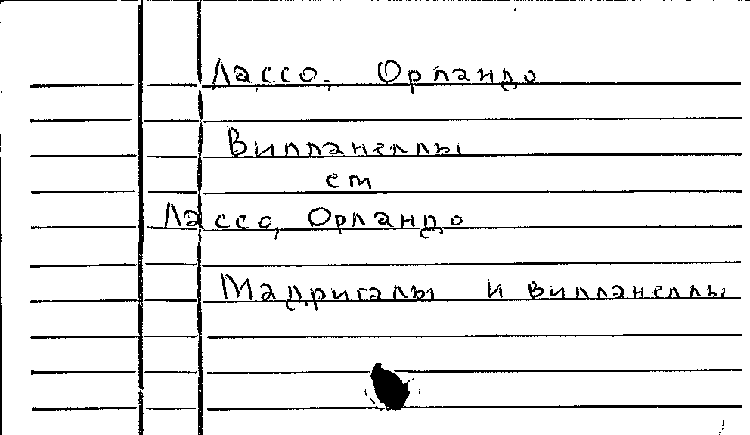 Лассо, Орландо
Вилланеллы
см
Лассо, Орландо
Мадригалы и вилланеллы